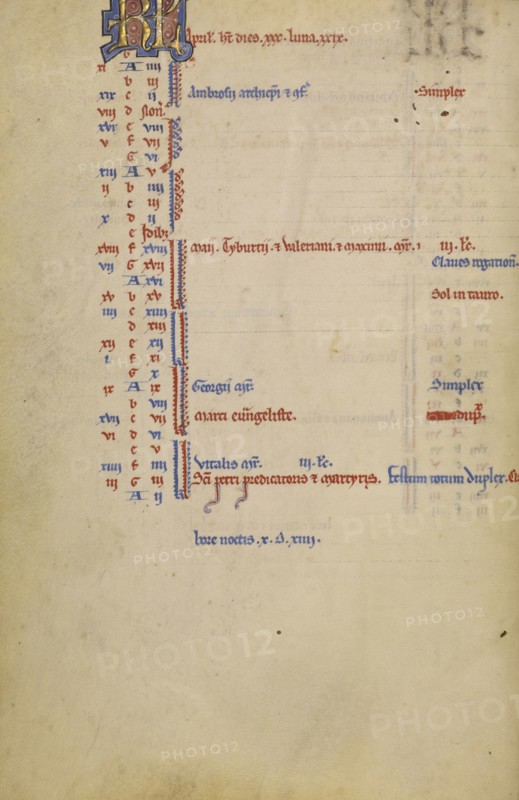 KL Aprił. ħt dies. xxx. luna. xxix.
g
xi A iiii
b iii
xix c ii Ambrosij archiepi ⁊ ꝯf. Simplex
viii d Non.
xvi e viii
v f vii
G vi
xiii A v
ii b iiii
c iii
x d ii
e Idib;
xviii f xviii maij. Tyburtij. ⁊ valeriani. ⁊ maximi. m̄r. iii. lc̄.
vii G xvii Claues rogation̄.
A xvi
xv b xv Sol in tauro.
iiii c xiiii
d xiii
xii e xii
i f xi
G x
ix A ix Georgij m̄r. Simplex
b viii
xvii c vii marci eu̅ngeliste. dup̄.
vi d vi
e v
xiiii f iiii Vitalis m̄r. iii. lc̄.
iii G iii Sc̄i petri predicatoris ⁊ martyris. Festum totum duplex.
A ii
hore noctis. x. D. xiiii.
PHOTO12